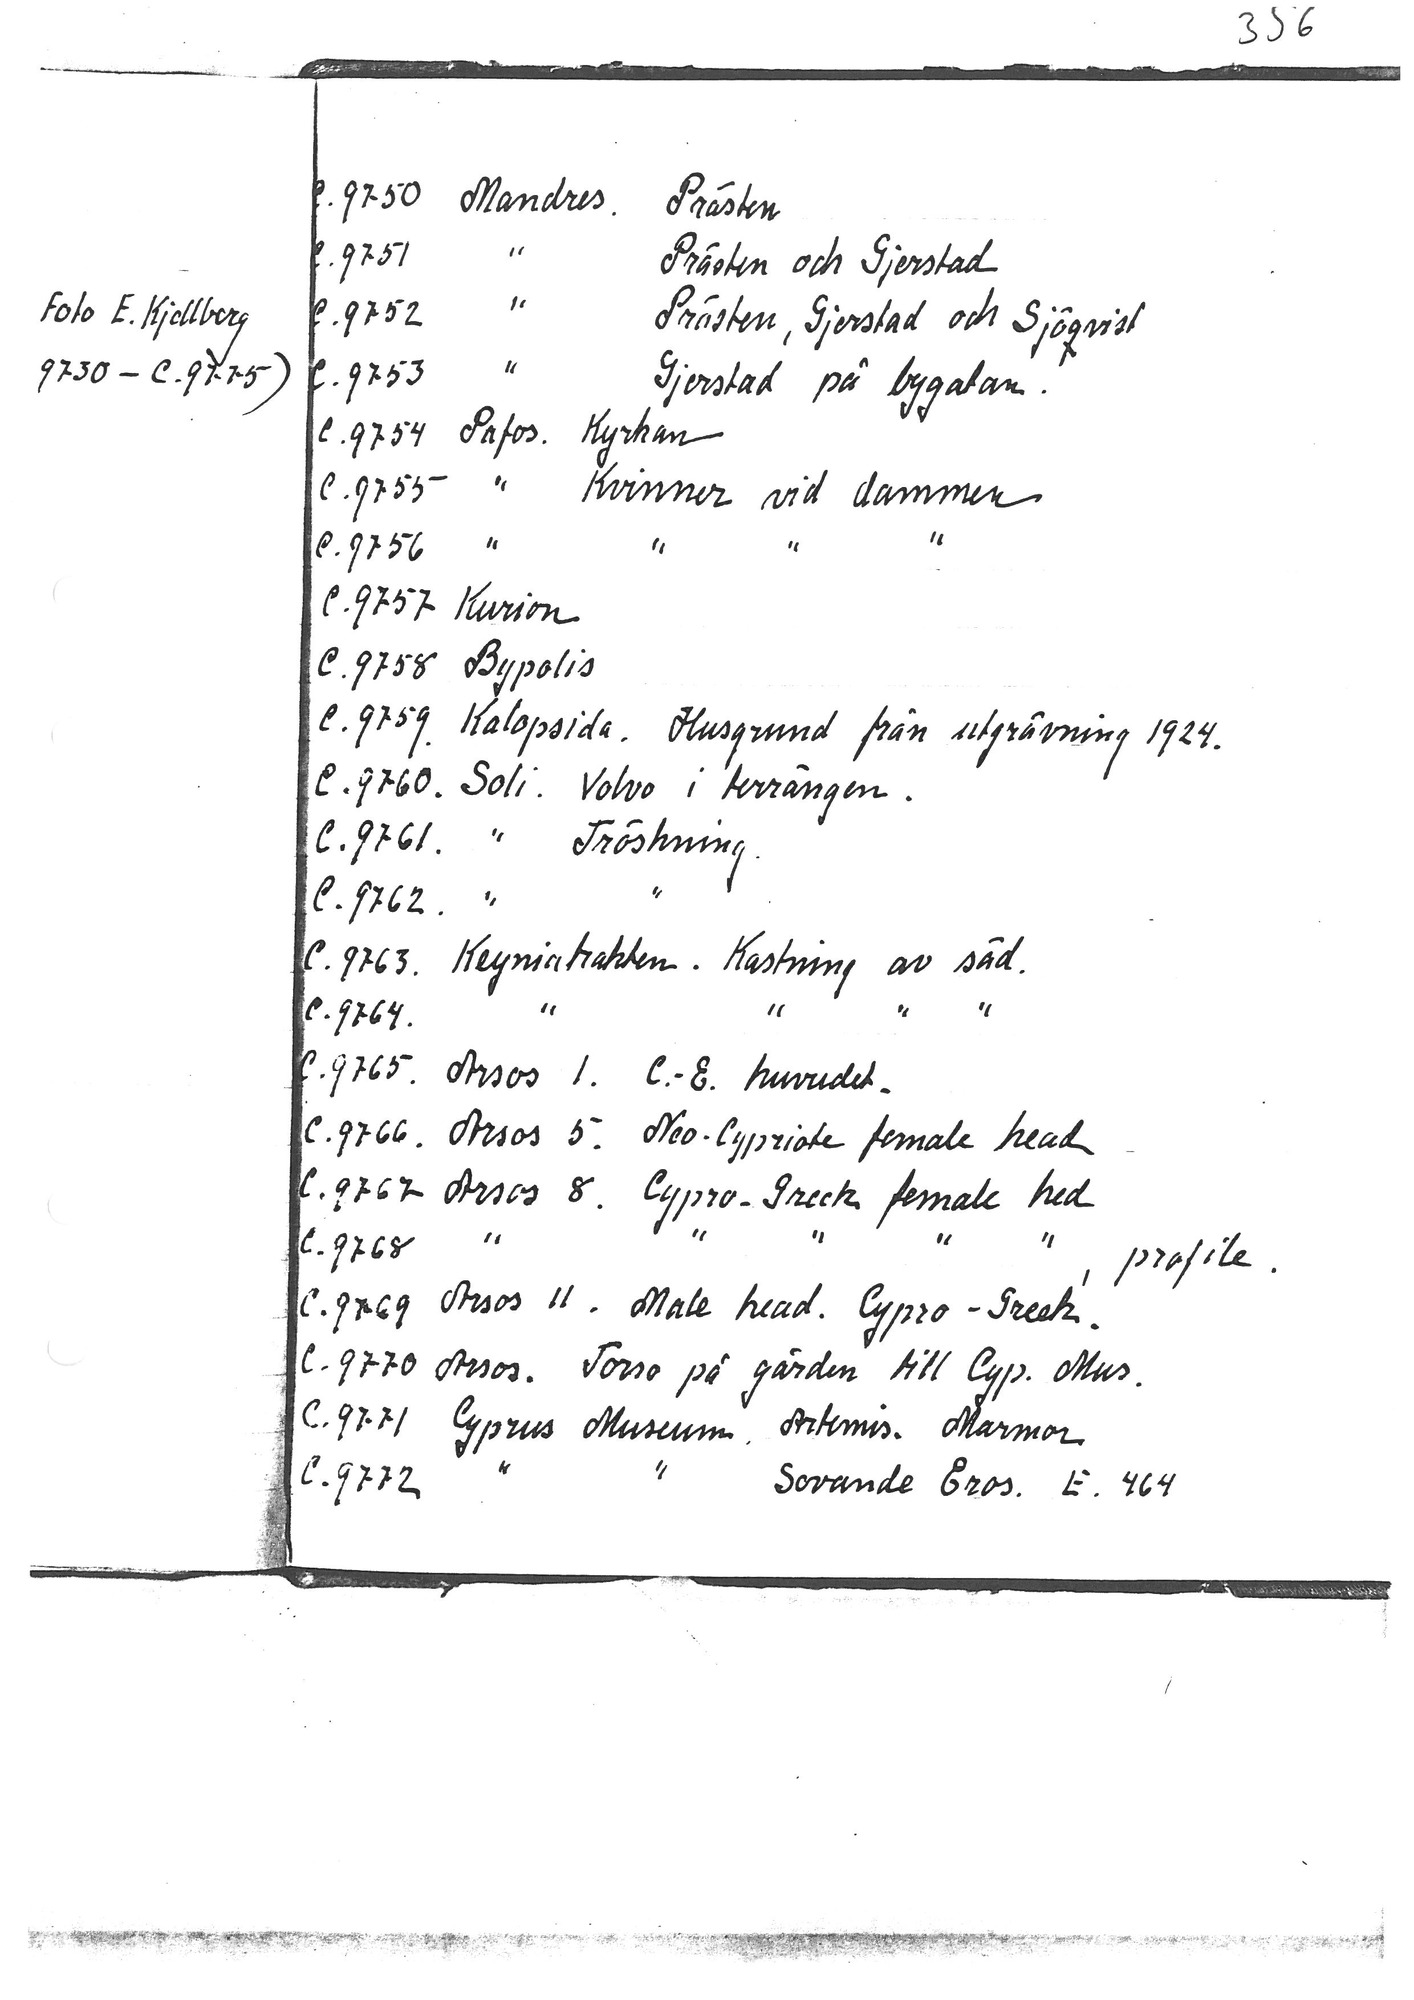 356
C.9750 Mandres. Prästen
C.9751 " Prästen och Gjerstad
Foto E. Kjellberg
9730 – C.9775)
C.9752 " Prästen, Gjerstad och Sjöqvist
C.9753 " Gjerstad på bygatan.
C.9754 Pafos. Kyrkan
C.9755 " Kvinner vid dammen
C.9756 " " " "
C.9757 Kurion
C.9758 Bypolis
C.9759. Kalopsida. Husgrund från utgrävning 1924.
C.9760. Soli. Volvo i terrängen.
C.9761. " Tröskning.
C.9762. " "
C.9763. Keyniatrakten. Kastning av säd.
C.9764. " " " "
C.9765. Arsos 1. C.-E. huvudet.
C.9766. Arsos 5. Neo-Cypriote female head
C.9767 Arsos 8. Cypro-Greek female hed
C.9768 " " " " ", profile.
C.9769 Arsos 11. Male head. Cypro-Greek.
C.9770 Arsos. Torso på gården till Cyp. Mus.
C.9771 Cyprus Museum. Artemis. Marmor
C.9772 " " Sovande Eros. E. 464